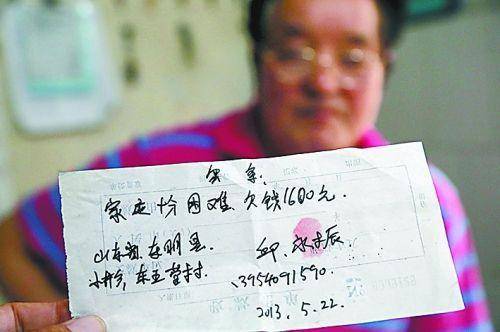 欠条.
家庭十分困难.欠钱1600元.
山东省.东明县. 邱. 辰
小井乡,东五营村. 13954091590.
2013.5.22.